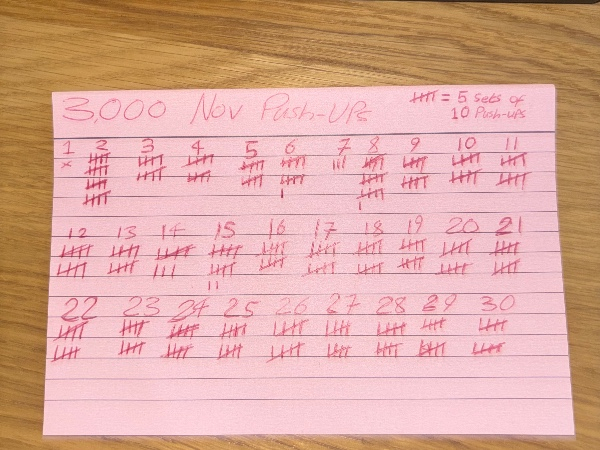 3,000 Nov Push-Ups
= 5 Sets of
10 Push-ups
1 2 3 4 5 6 7 8 9 10 11
x
12 13 14 15 16 17 18 19 20 21
22 23 24 25 26 27 28 29 30